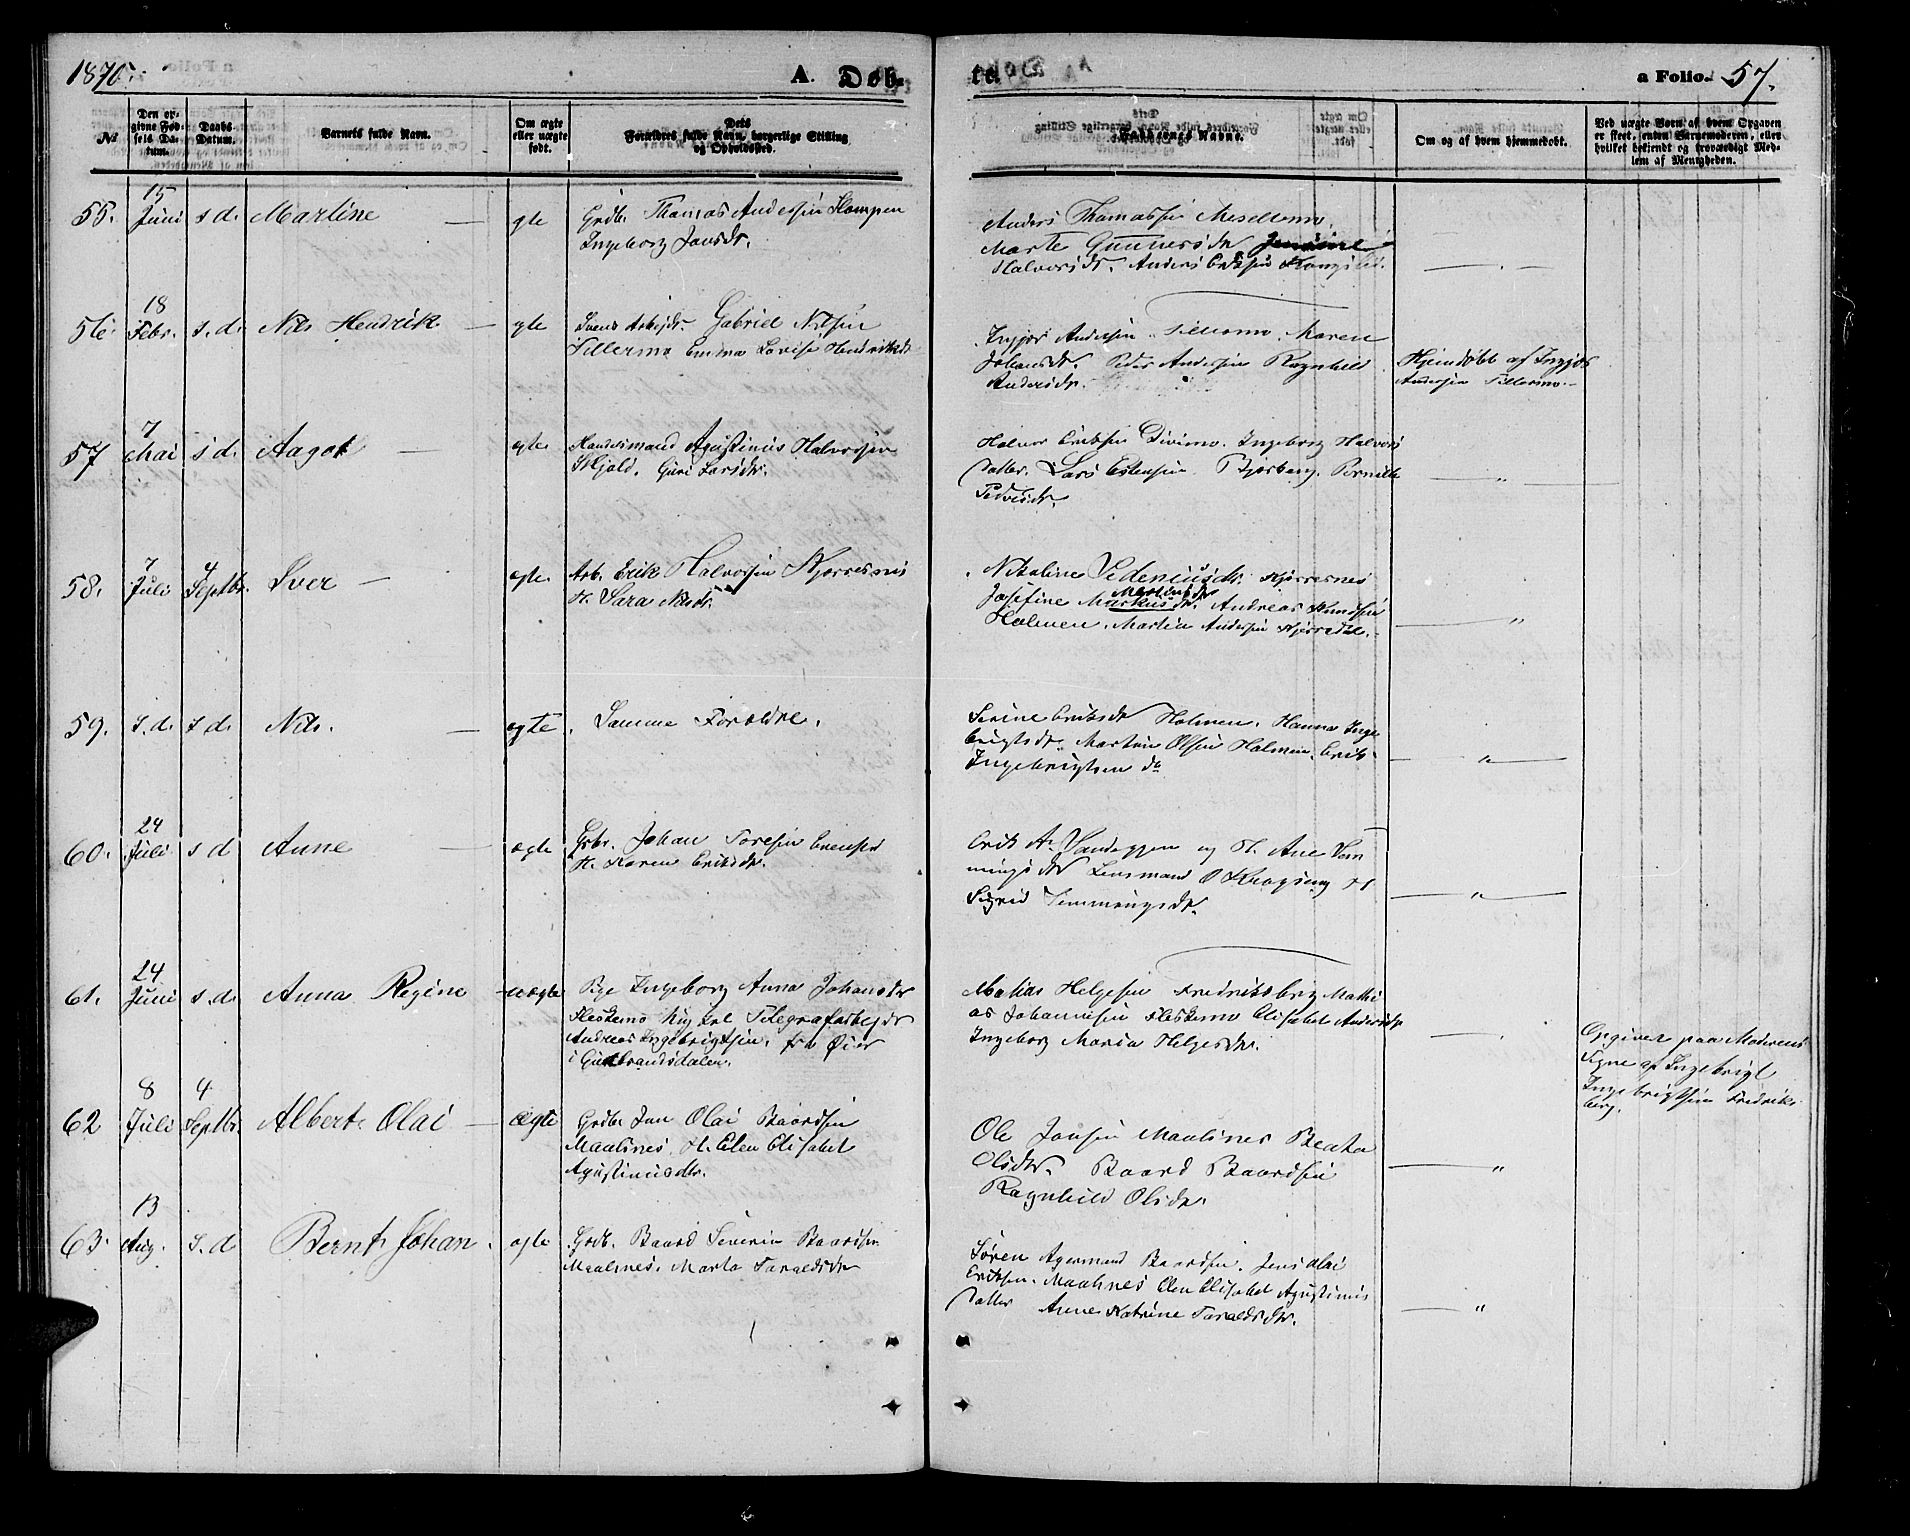 1870.
A. Døb-
te.
a Folio. 57.
No
Den opgivne Fødsels Datum.
Daabs Datum.
Barnets fulde Navn.
Om ægte eller uægte født.
Dets Forældres fulde Navn, borgerlige Stilling og Opholdssted.
Faddernes Navne.
Om og af hvem hjemmedøbt.
Ved uægte Børn af hvem Opgaven er skeet, enten Børgemoderen, eller hvilket bekjendt og troværdigt Medlem af Menigheden.
55. 15 Juni s. d. Martine — gte Grdb. Thomas Andersen
Ingeborg Jonsdr.
Anders Thomassen Mesellmo.
Marte Gunnersdr
Halvorsdr. Anders Eriksen
56. 18 Febr. s. d. Nils Hendrik — gte Gabriel Nilsen
Tillermo Emma Lovise Hendriksdr
Ingjør Andersen Tillermo. Maren
Johansdr. Peder Andersen Ragnhild
Andersdr.
Hjemdøbt af Ingjør
Andersen Tillermo.
57 7 Mai s d. Aagot — egte Handelsmand Agustinus Halvorsen
Skjold. Guri Larsdr.
Halvor Eriksen Divimo. Ingeborg Halvors
datter. Lars Estensen Bjerberg. Pernille
58. 7 Juli 4 Septbr. Iver — egte. Arb. Erik Halvorsen Kjerresnes
H. Sara Nilsdr.
Nikoline Kjerresnes
Josefine Markusdr. Andreas Knudsen
Holmen. Martin Andersen
59. s. d. s d. Nils. — egte. Samme Forældre.
Serine Eriksdr Holmen. Hanna Inge
brigtsdr. Martin Olsen Holmen. Erik
Ingebrigtsen do
60. 24 Juli s d Anne — ægte Grbr. Johan Toresen
H. Karen Eriksdr.
Erik A. og H. Ane Tem
mingsdr Lensmand O
Sigrid Temmingsdr.
61. 24 Juni s. d. Anna Regine uægte Pge Ingeborg Anna Johansdr
Fleskemo Telegrafarbejdr
Andreas Ingebrigtsen. fra Øier
i Gudbrandsdalen.
Matias Helgesen Fredriksberg Mathi
as Johannesen Fleskemo Elisabet Andersdr
Ingeborg Maria Helgesdr.
Opgivet paa Moderens
Vegne af Ingebrigt
Ingebrigtsen Fredriks
berg.
62 8 Juli 4 Septbr. Albert Olai — ægte Grdbr Jan Olai Baardsen
Maalsnes. H. Elen Elisabet
Agustinusdtr.
Ole Jonsen Maalsnes Beata
Olsdtr. Baard Baardsen
Ragnhild Olsdr.
63. 13 Aug. s. d Bernt Johan. egte Grdb. Baard Severin Baardsen
Maalsnes. Marta Taraldsdr
Søren Agermand Baardsen. Jens Olai
Eriksen. Maalsnes Elen Elisabet Agustinus
datter Anne Katrine Taraldsdtr.